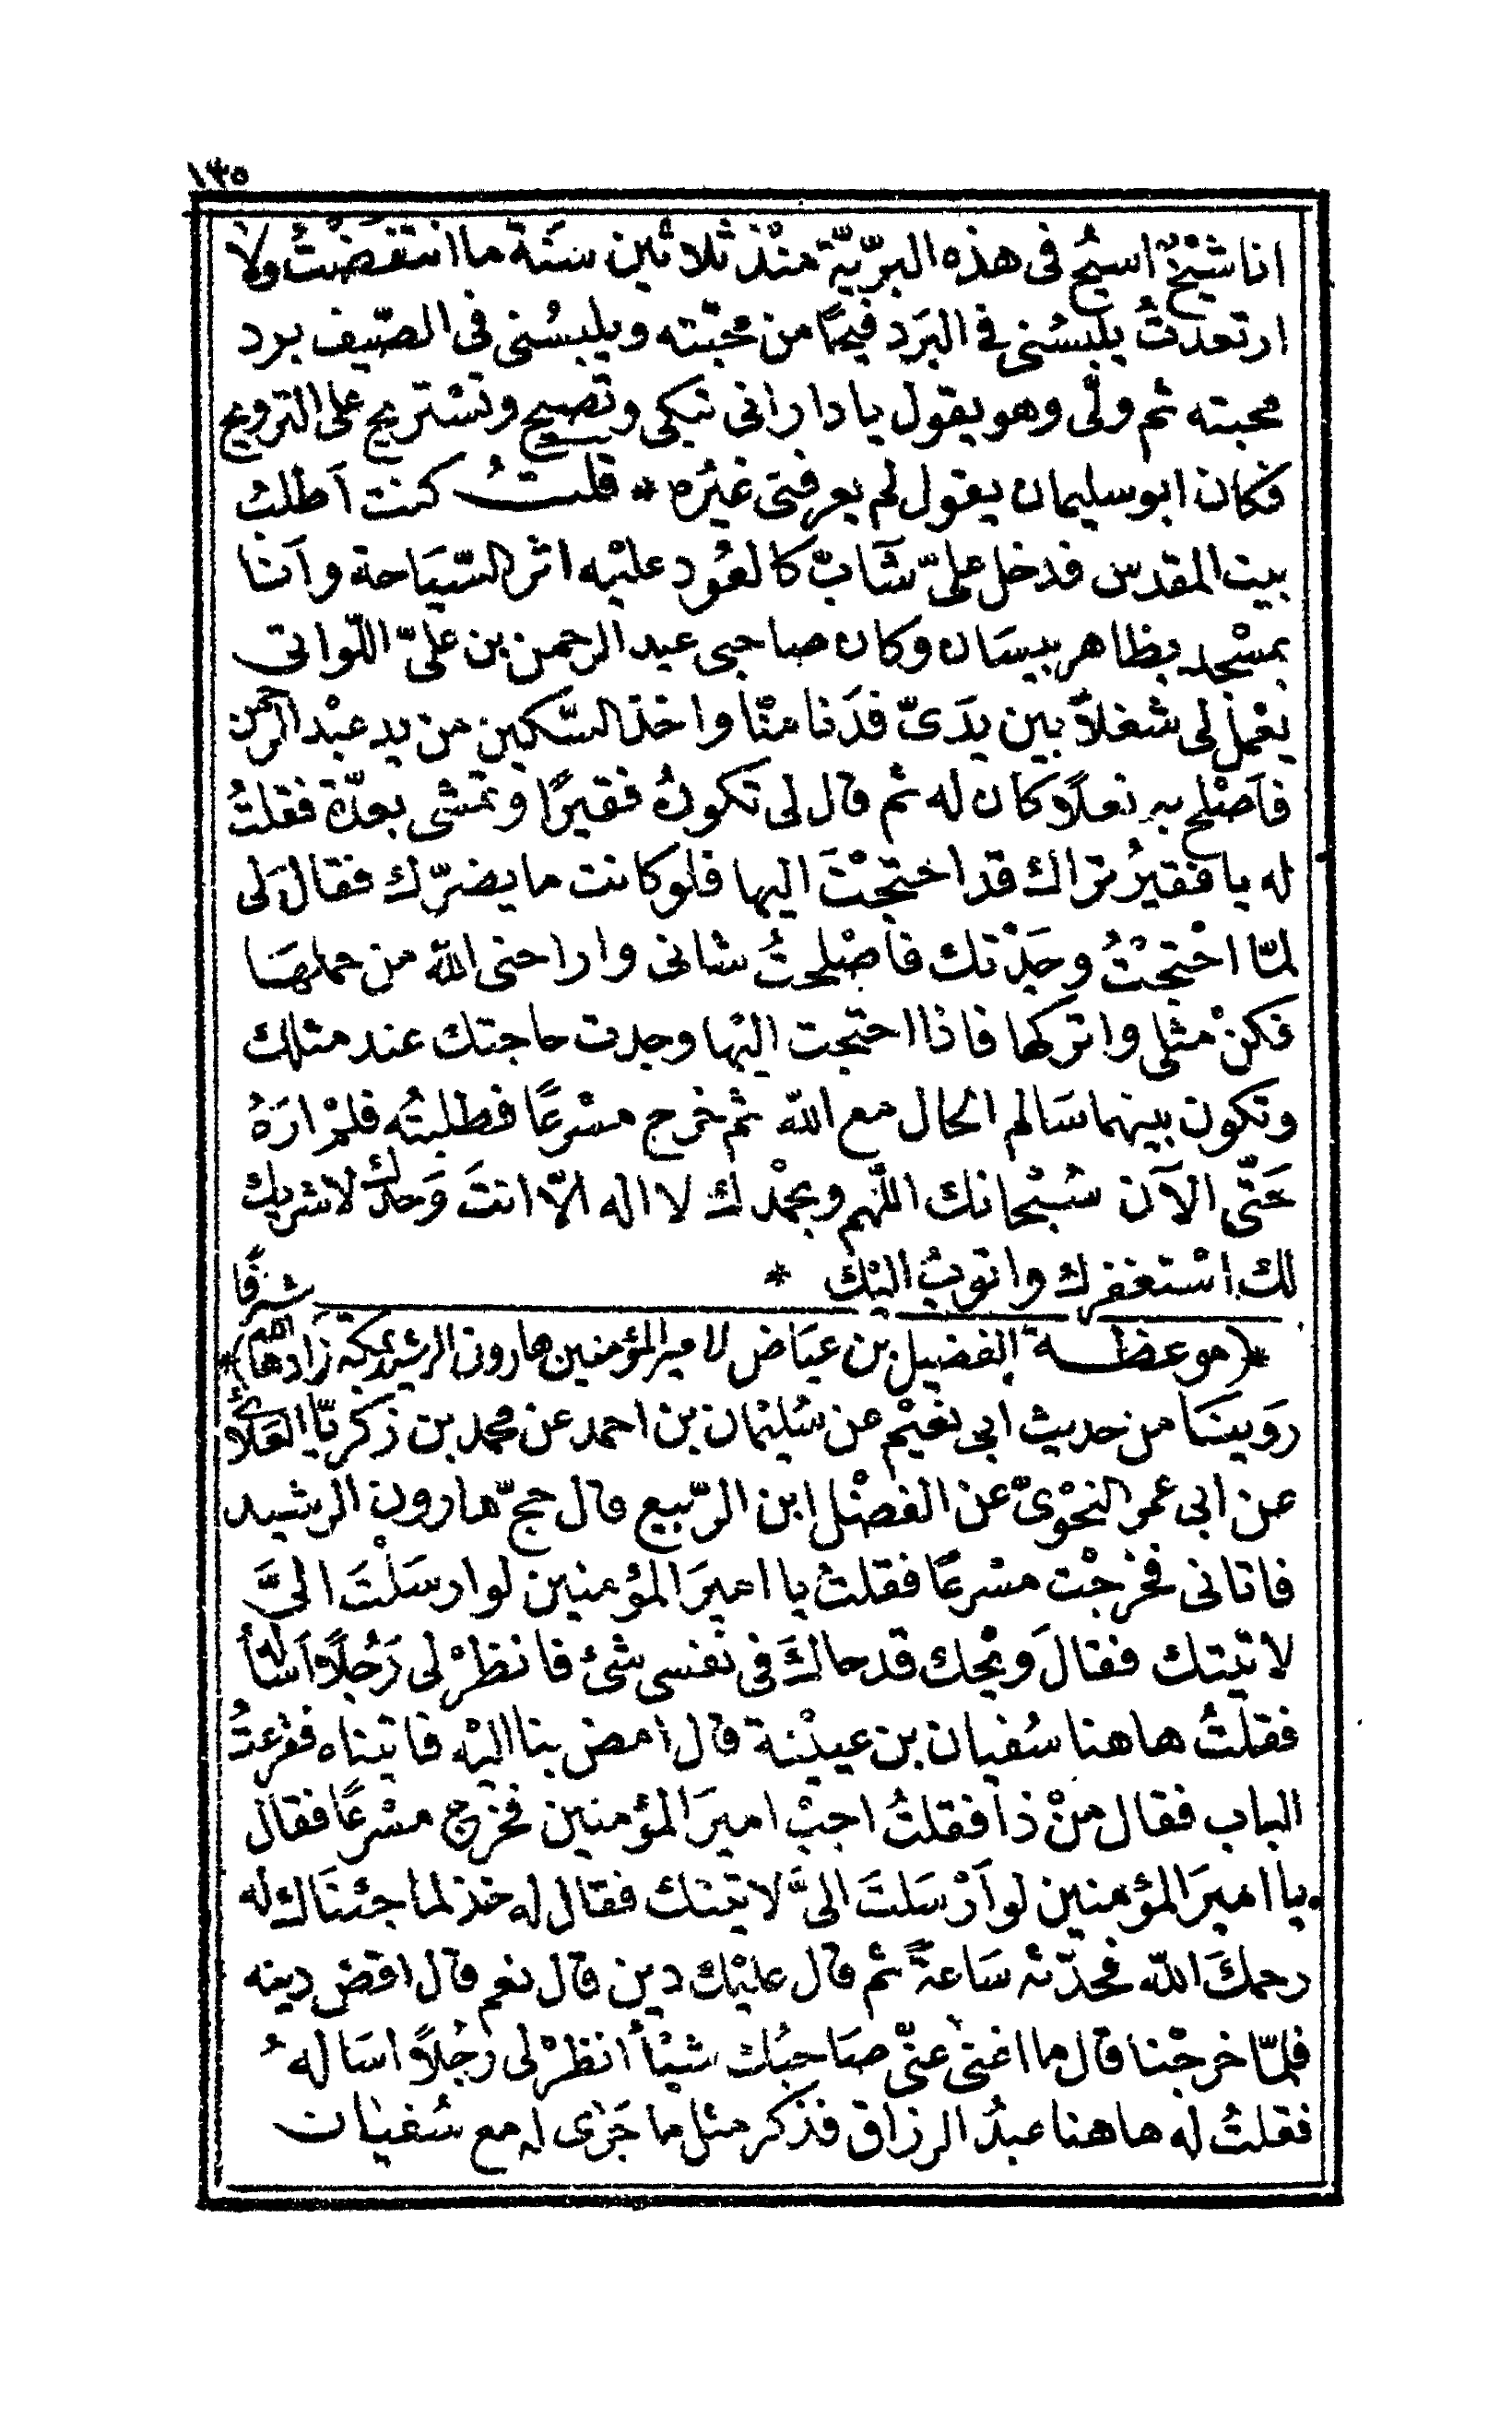 ١٣٥
انا شَيْخٌ اسيحُ فى هذه البرّيّة منْذ ثلاثين سَنَة ما انتفَضْتُ ولا
ارتعدتُ يلبسُنى فى البَرَد فيحًا من محبّته ويلبسُنى فى الصّيف برد
محبته ثم ولّى وهو يقول يا دارانى تبكى وتصيح وتستريح على الترويح
فكان ابو سليمان يقول لم يعرفنى غيُره * قلتُ كنت اَطلبُ
بيت المقدس فدخل علىّ شَابّ كالعُود عليْه اثر السّيَاحة واَنا
بمسْجد بظاهر بيسَان وكان صاحبى عبد الرحمن بن علىّ اللّواتى
يعْمل لى شغلاً بين يدَىّ فدَنا منّا واخذ السّكين من يد عبْد الرحمن
فاَصْلح به نعلاً وكان له ثم قال لى تكونُ فقيرًا وتمشى بعدّة فقلتُ
له يا فقيرُ تراك قد احتجْتَ اليها فلو كانت ما يضرّك فقال لى
لمّا احْتجْتُ وجَدْتك فاصْلحتُ شانى واراحنى الله من حملهَا
فكنْ مثلى واتركها فاذا احتجت اليْها وجدت حاجتك عند مثلك
وتكون بينهما سَالم الحال مع الله ثم خرج مسْرعًا فطلبتُه فلمْ ارَهُ
حَتّى الآن سُبْحانك اللّهم وبحمْدك لا اله الّا انتَ وَحدك لا شريك
لك اسْتغفرك واتوبُ اليْك *
* (موعظة الفضيل بن عيَاض لامير المؤمنين هارون الرشيد بمكة زَادها الله شرفًا) *
رَوينَا من حديث ابى نعيْم عن سُليْمان بن احمد عن محمد بن زكريّا الغلائى
عن ابى عمر النحْوىّ عن الفضْل ابن الرّبيع قال حجّ هارون الرشيد
فاتانى فخرجْت مسْرعًا فقلتُ يا اميرَ المؤمنين لو ارسَلْتَ الىَّ
لاتيتك فقالَ ويْحك قد حاكَ فى نفسى شئ فانظرْ لى رَجُلاً اَسْأله
فقلتُ هاهنا سُفيان بن عييْنة قال امض بنا اليْه فاتيناه فقرعتُ
الباب فقال منْ ذا فقلتُ اجبْ اميرَ المؤمنين فخرج مسْرعًا فقال
يا اميرَ المؤمنين لو اَرْسَلتَ الىَّ لاتيتك فقال له خذ لما جئنَاك له
رحمكَ الله فحدّثه سَاعةً ثم قال عليْك دين قال نعم قال اقض دينه
فلمّا خرجْنا قال ما اغنى عنّى صَاحبُك شيْأ انظرْ لى رَجُلاً اسَالهُ
فقلتُ له هاهنا عبدُ الرزاق فذكر مثل ما جَرٰى له مع سُفيٰان